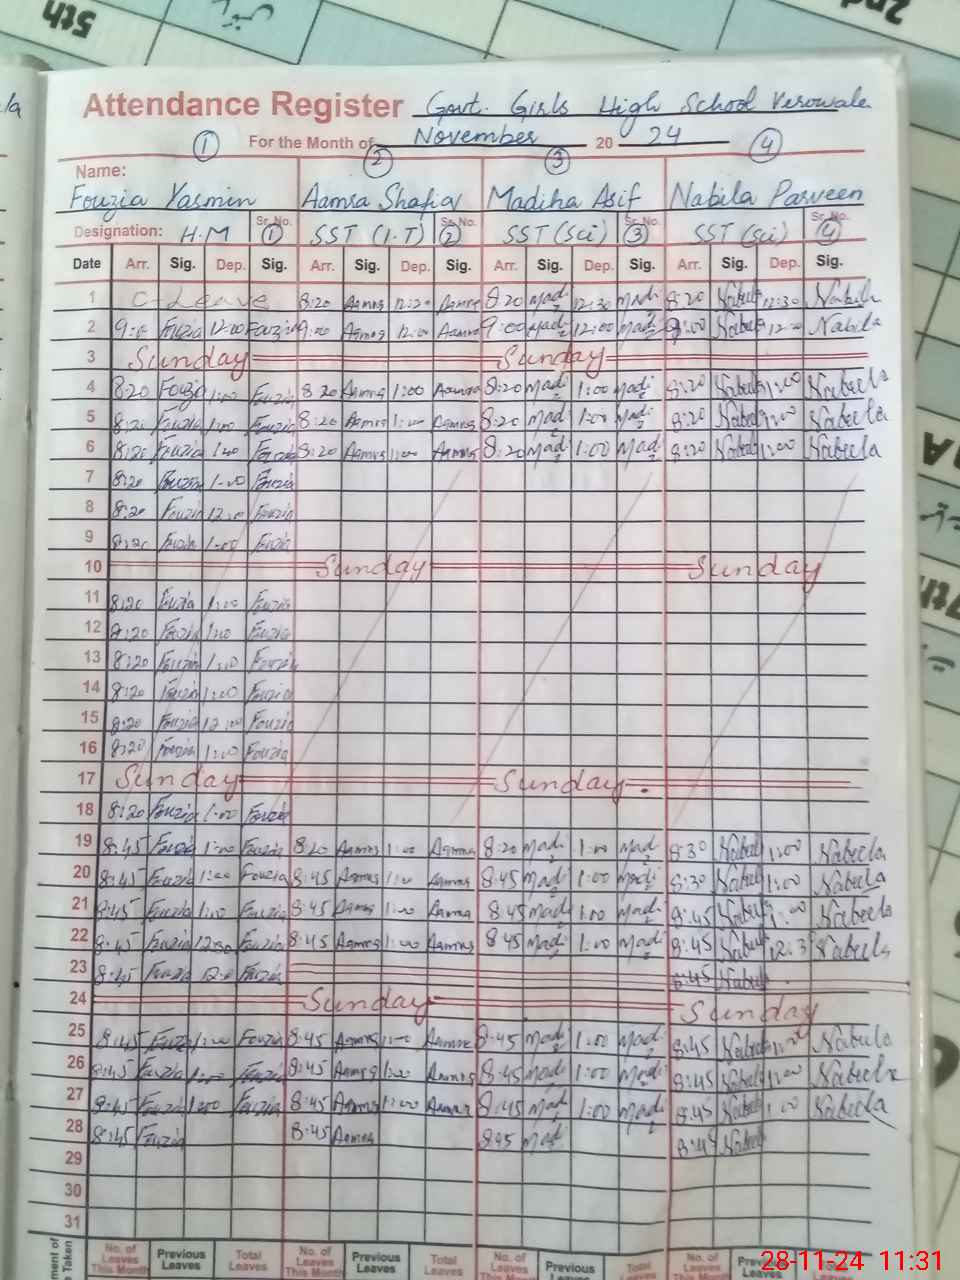 5th
2nd
Attendance Register Govt. Girls High School Verowale
For the Month of November 20 24
1 2 3 4
Name:
Fouzia Yasmin Aamra Shafiq Madiha Asif Nabila Parveen
Designation: H.M Sr. No. 1 SST (I.T) Sr. No. 2 SST (Sci) Sr. No. 3 SST (Sci) Sr. No. 4
Date Arr. Sig. Dep. Sig. Arr. Sig. Dep. Sig. Arr. Sig. Dep. Sig. Arr. Sig. Dep. Sig.
1 C-Leave 8:20 Aamra 12:30 Aamra 8:20 Madi 12:30 Madi 8:20 Nabila 12:30 Nabila
2 9:00 Fouzia 12:00 Fouzia 9:00 Aamra 12:00 Aamra 9:00 Madi 12:00 Madi 9:00 Nabila 12:00 Nabila
3 Sunday Sunday
4 8:20 Fouzia 1:00 Fouzia 8:20 Aamra 1:00 Aamra 8:20 Madi 1:00 Madi 8:20 Nabila 1:00 Nabeela
5 8:20 Fouzia 1:00 Fouzia 8:20 Aamra 1:00 Aamra 8:20 Madi 1:00 Madi 8:20 Nabila 1:00 Nabeela
6 8:20 Fouzia 1:00 Fouzia 8:20 Aamra 1:00 Aamra 8:20 Madi 1:00 Madi 8:20 Nabila 1:00 Nabeela
7 8:20 Fouzia 1:00 Fouzia
8 8:20 Fouzia 12:00 Fouzia
9 8:20 Fouzia 1:00 Fouzia
10 Sunday Sunday
11 8:20 Fouzia 1:00 Fouzia
12 8:20 Fouzia 1:00 Fouzia
13 8:20 Fouzia 1:00 Fouzia
14 8:20 Fouzia 1:00 Fouzia
15 8:20 Fouzia 12:00 Fouzia
16 8:20 Fouzia 1:00 Fouzia
17 Sunday Sunday
18 8:20 Fouzia 1:00 Fouzia
19 8:45 Fouzia 1:00 Fouzia 8:20 Aamra 1:00 Aamra 8:20 Madi 1:00 Madi 8:30 Nabeela 1:00 Nabeela
20 8:45 Fouzia 1:00 Fouzia 8:45 Aamra 1:00 Aamra 8:45 Madi 1:00 Madi 8:30 Nabeela 1:00 Nabeela
21 8:45 Fouzia 1:00 Fouzia 8:45 Aamra 1:00 Aamra 8:45 Madi 1:00 Madi 8:45 Nabeela 1:00 Nabeela
22 8:45 Fouzia 12:30 Fouzia 8:45 Aamra 1:00 Aamra 8:45 Madi 1:00 Madi 8:45 Nabeela 12:3 Nabeela
23 8:45 Fouzia 12:0 Fouzia 8:45 Nabeela
24 Sunday Sunday
25 8:45 Fouzia 1:00 Fouzia 8:45 Aamra 1:00 Aamra 8:45 Madi 1:00 Madi 8:45 Nabeela 1:00 Nabeela
26 8:45 Fouzia 1:00 Fouzia 8:45 Aamra 1:00 Aamra 8:45 Madi 1:00 Madi 8:45 Nabeela 1:00 Nabeela
27 8:45 Fouzia 1:00 Fouzia 8:45 Aamra 1:00 Aamra 8:45 Madi 1:00 Madi 8:45 Nabeela 1:00 Nabeela
28 8:45 Fouzia 8:45 Aamra 8:45 Madi 8:45 Nabeela
29
30
31
No. of Leaves This Month Previous Leaves Total Leaves No. of Leaves This Month Previous Leaves Total Leaves No. of Leaves This Month Previous Leaves Total Leaves No. of Leaves This Month
28-11-24 11:31